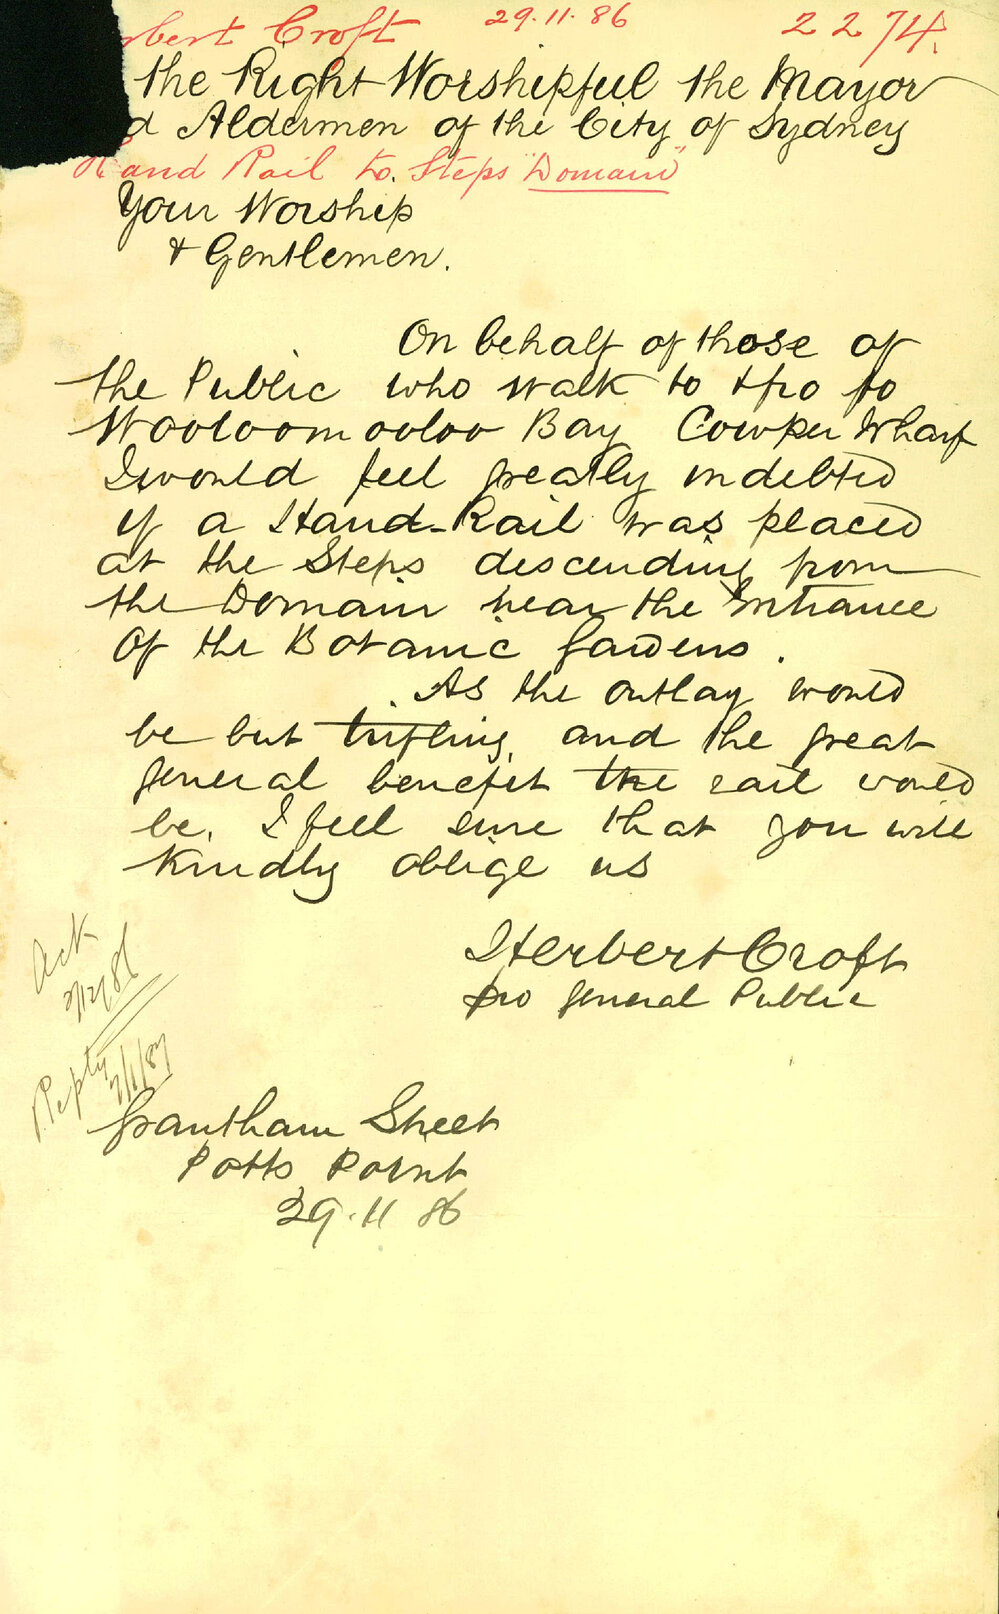 rbert Croft 29.11.86 2274.
the Right Worshipful the Mayor
d Aldermen of the City of Sydney
Hand Rail to. Steps "Domain"
Your Worship
& Gentlemen.
On behalf of those of
the Public who walk to & fro to
Wooloomooloo Bay Cowper Wharf
I would feel greatly indebted
if a Hand-Rail was placed
at the Steps descending from
the Domain near the Entrance
Of the Botanic Gardens.
As the outlay would
be but trifling, and the great
general benefit the rail would
be, I feel sure that you will
kindly oblige us
Herbert Croft
pro General Public
Ack
2/12/86
Reply
7/1/87
Grantham Street
Potts Point
29.11 86